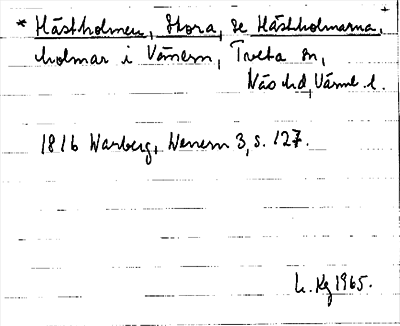 * Hästholmen, Stora, se Hästholmarna,
holmar i Vänern, Tveta sn,
Näs hd, Värml. l.
1816 Warberg, Wenern 3, s. 127.
L. Kg 1965.